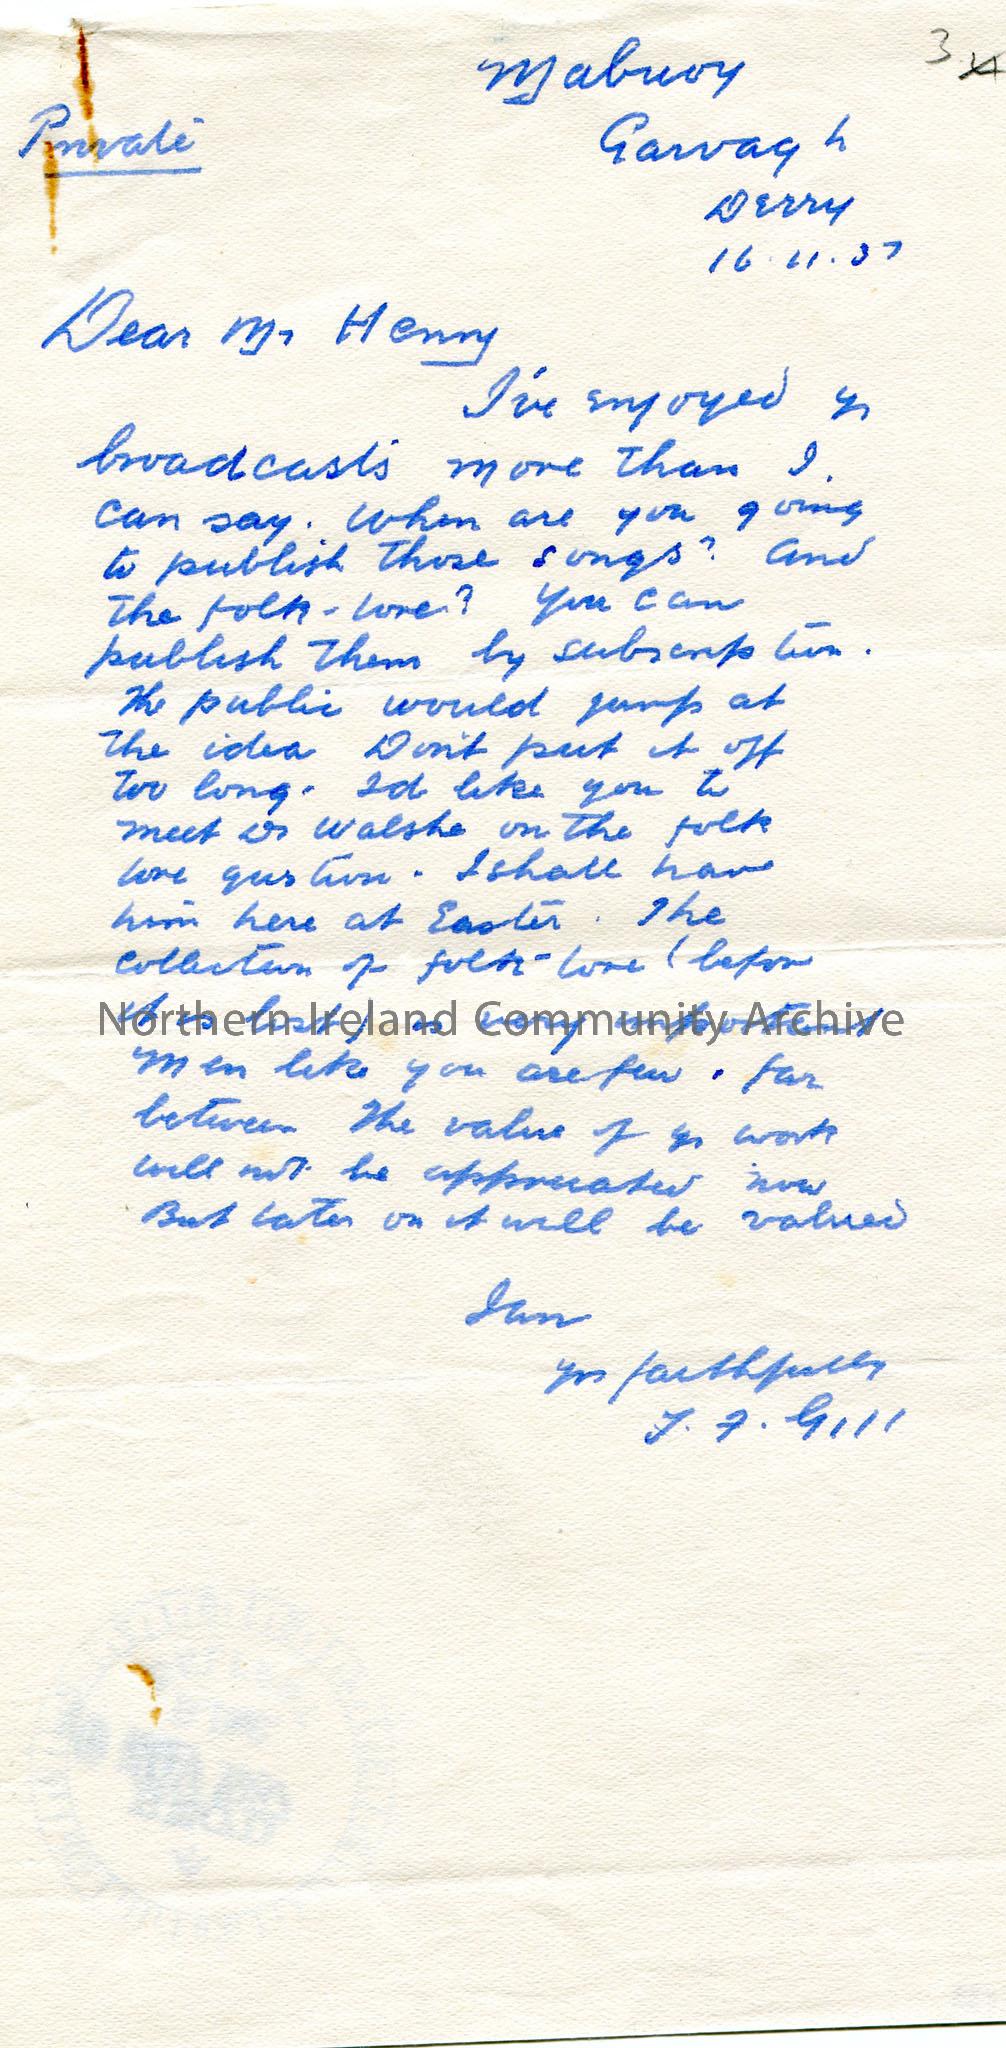 3
Private
Mabuoy
Garvagh
Derry
16.11.37
Dear Mr Henry
I've enjoyed yr
broadcasts more than I
can say. When are you going
to publish those songs? And
the folk-lore? You can
publish them by subscription.
The public would jump at
the idea Don't put it off
too long. I'd like you to
meet Dr Walshe on the folk
lore question. I shall have
him here at Easter. The
collection of folk-lore (before
it is lost) is very important
Northern Ireland Community Archive
Men like you are few . far
between The value of yr work
will not be appreciated now
But later on it will be valued
I am
yrs faithfully
T. F. Gill